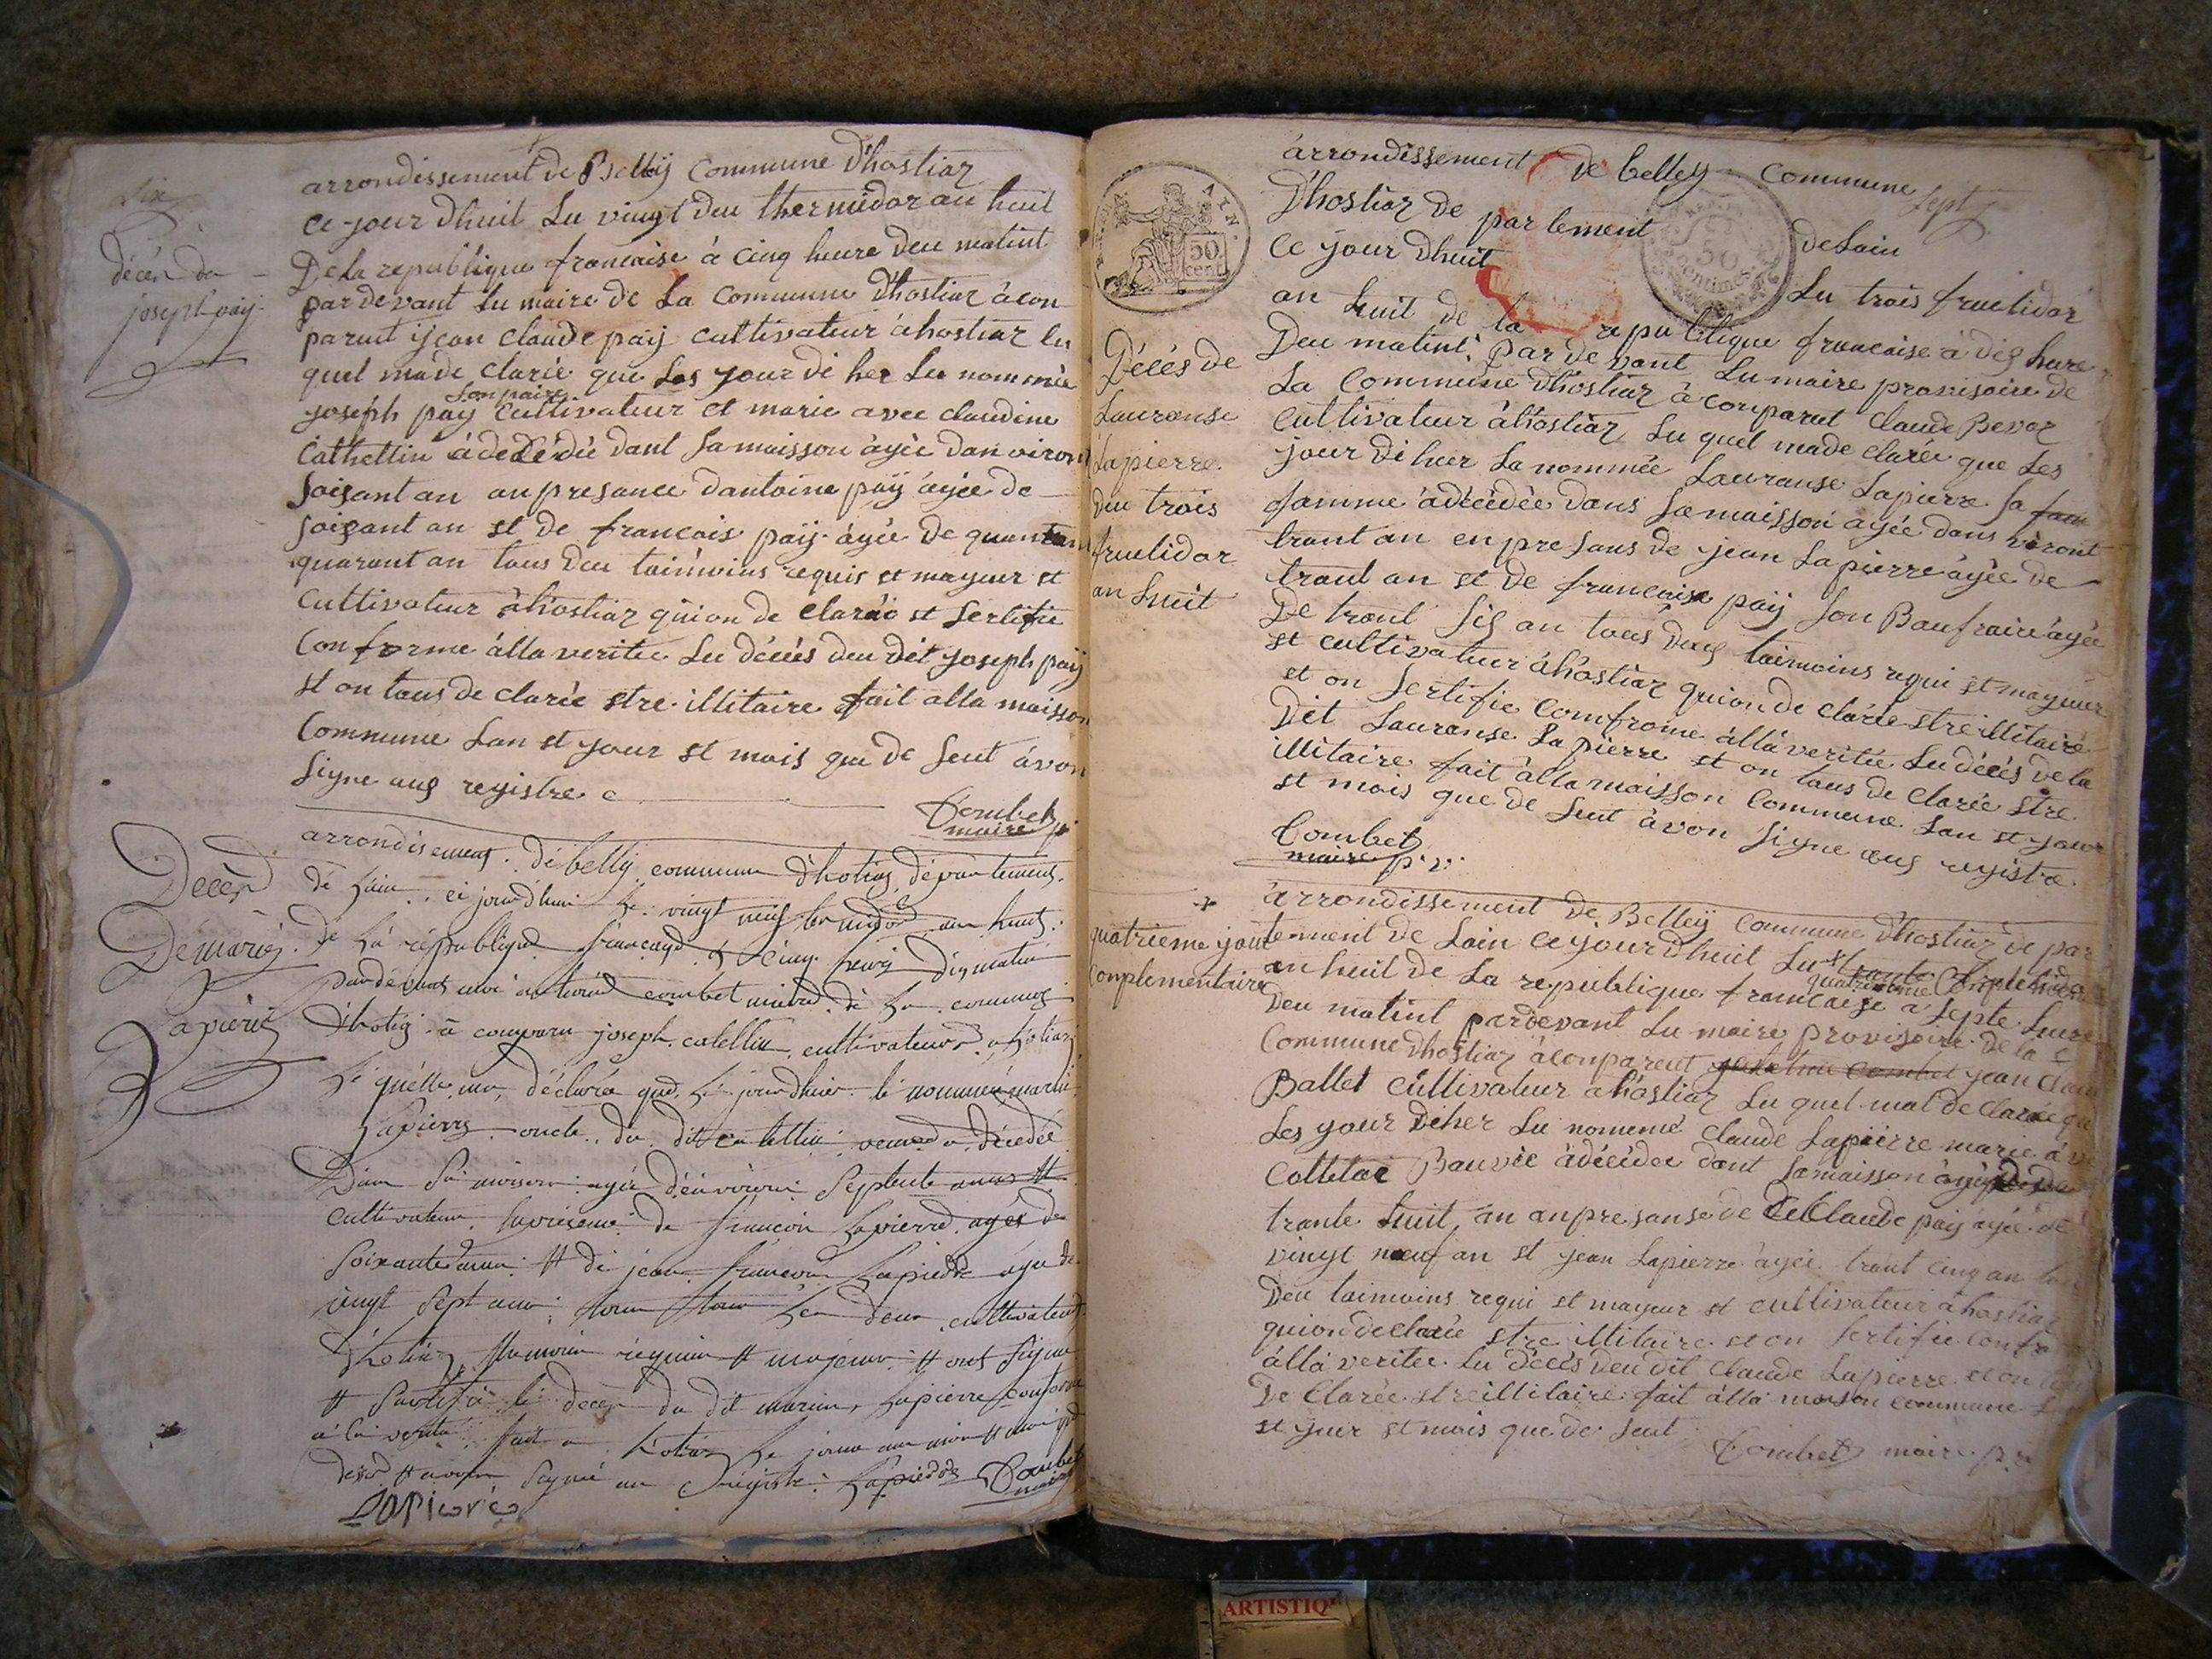 six
décés du
joseph paij
arrondissement de Belleij Commune Dhostiaz
Ce jour dhuit Lu vingt deu thermidor an huit
De la republique francaise à Cinq heure deu matint
par devant Lu maire de La Commune Dhostiaz à con
parut ijean Claude paij cultivateur à hostiaz lu
quel made clarée que Les jour di her Lu nommée
son paire
joseph paij cultivateur et marie avec claudine
Cathellin à dedédé dant samaisson àyée danviron
soisant an an presance dantoine paij àyée de
soisant an st de francois paij àyée De
quarant an tous deu taimoins requis et mayeur et
Cultivateur àhostiaz quion de clarée st sertifie
Conforme álla veritée Lu décés deu dit joseph paij
st on tous de clarée stre illitaire fait alla maisson
Commune Lan st jour st mois que de sent ávon
signe aus registre
Combet
maire p.
Décès
De mariés
Lapierre
arrondisement de belley commune dhotias département
de Lain ce jourdhui le vingt neuf termidor an huit
de la république française à cinq heures du matin
par devant moi antoine combet maire de la commune
dhotias à comparu joseph catellin cultivateur a hotias
lequelle ma déclaré que le jour dhier le nommé marin
Lapierre oncle du dit catellin veuve a décédé
Dans sa maison agée denviron septente ans et
cultivateur en présence de françois Lapierre agés de
soixante et de jean françois Lapierre agé de
vingt sept ans tous deux cultivateurs
dhotias témoin réquis et majeur et ont signé
et sertifié le décès du dit marin Lapierre conforme
à la vérité fait a hotias le jour an mois
dessus et avons signé au régistre Lapierre Combet
maire
Lapierre
sept
arrondissement de belley Commune
Dhostiaz De partement deLain
Ce jour Dhuit Lu trois fructidor
an huit de la republique francaise à dis hure
Deu matint par de vant Lu maire provisoire de
La Commune Dhostiaz à conparut Claude Bevoz
Cultivateur àhostiaz Lu quel made clarée que Les
jour di hier La nommée Lauranse Lapierre sa
famme àdécédée dans samaisson àyée dans viront
trant an en presans de jean Lapierre àyée de
trant an st de francaise paij son Baufraire àyée
De trant sis an tous deus taimoins requi st mayeur
st cultivateur àhostiaz quion de clarée stre illitaire
et on sertifie Comfrome álla veritée Lu décés de la
Dit Lauranse Lapierre st on tous de clarée stre
illitaire fait àlla maisson Commune Lan st jour
st mois que de sent àvon signe aus registre
Combet
maire p.r.
Décés de
Lauranse
Lapierre
deu trois
fructidor
an huit
quatrieme jour
Complementaire
arrondissement de Belleij Commune Dhostiaz de par
tement de Lain Ce jour Dhuit Lu
quatrieme Complementaire
an huit de La republique francaise a septe hure
Deu matint pardevant Lu maire provisoire de la
Commune Dhostiaz àconparent jean Claude
Ballet Cultivateur ahostiaz Lu quel mat de Clarée que
Les jour Diher Lu nommé Claude Lapierre marie à
Colletai Bauvée àdécédée dant samaisson àyée de
trante huit an an presanse de Claude paij àyée de
vingt neuf an st jean Lapierre àyée trant cinq an
Deu taimoins requi st mayeur st cultivateur àhostiaz
quion de clarée stre illitaire st on sertifie Confr
àlla veritee Lu Décés deu dit Claude Lapierre st on
De Clarée stre illitaire fait àlla maison commune
st jour st mois que de sent
Combet maire p.r
AIN.
50
cent
50
centimes
ARTISTIQ